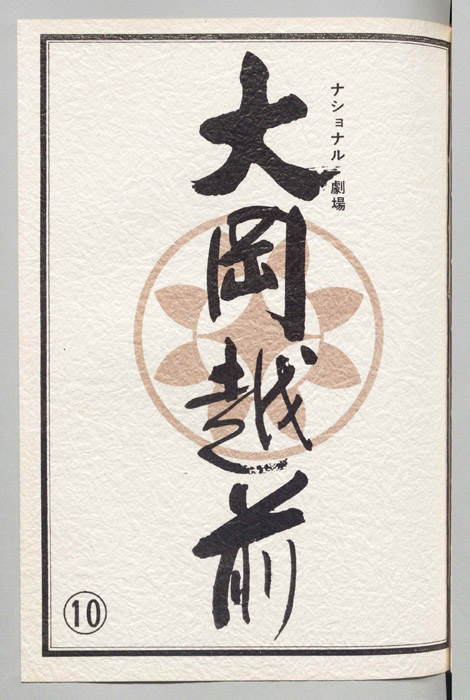 ナショナル劇場
大岡越前
⑩